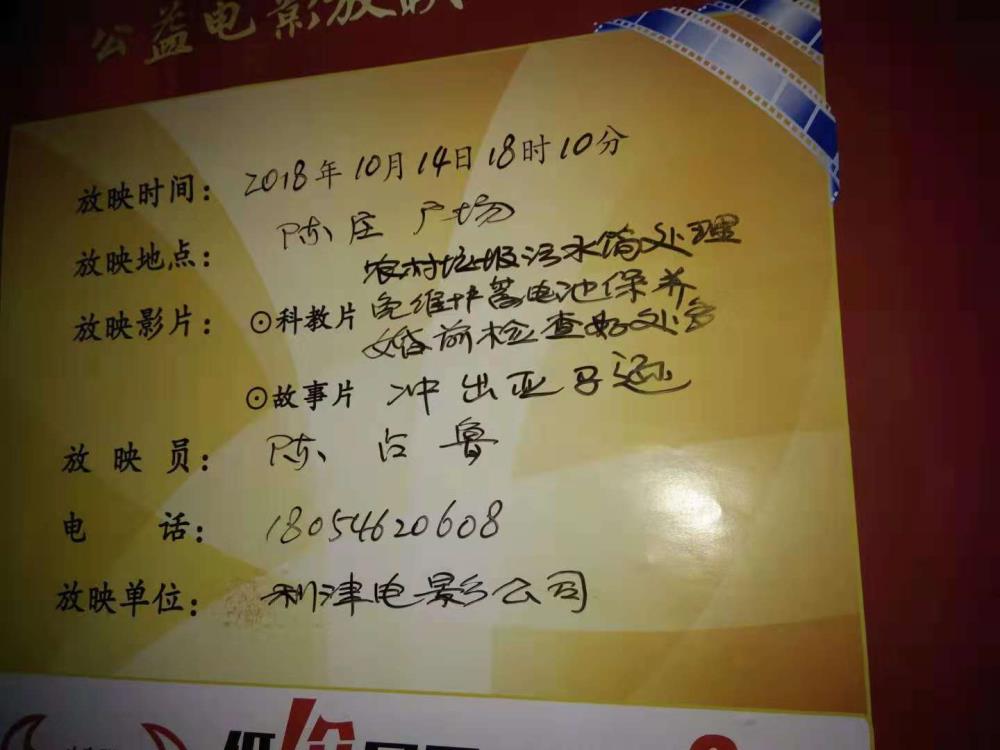 公益电影放映
放映时间：2018年10月14日18时10分
放映地点：陈庄广场
农村垃圾污水简处理
放映影片：⊙科教片 免维护蓄电池保养
婚前检查好处多
⊙故事片 冲出亚马逊
放映员：陈占鲁
电话：18054620608
放映单位：利津电影公司